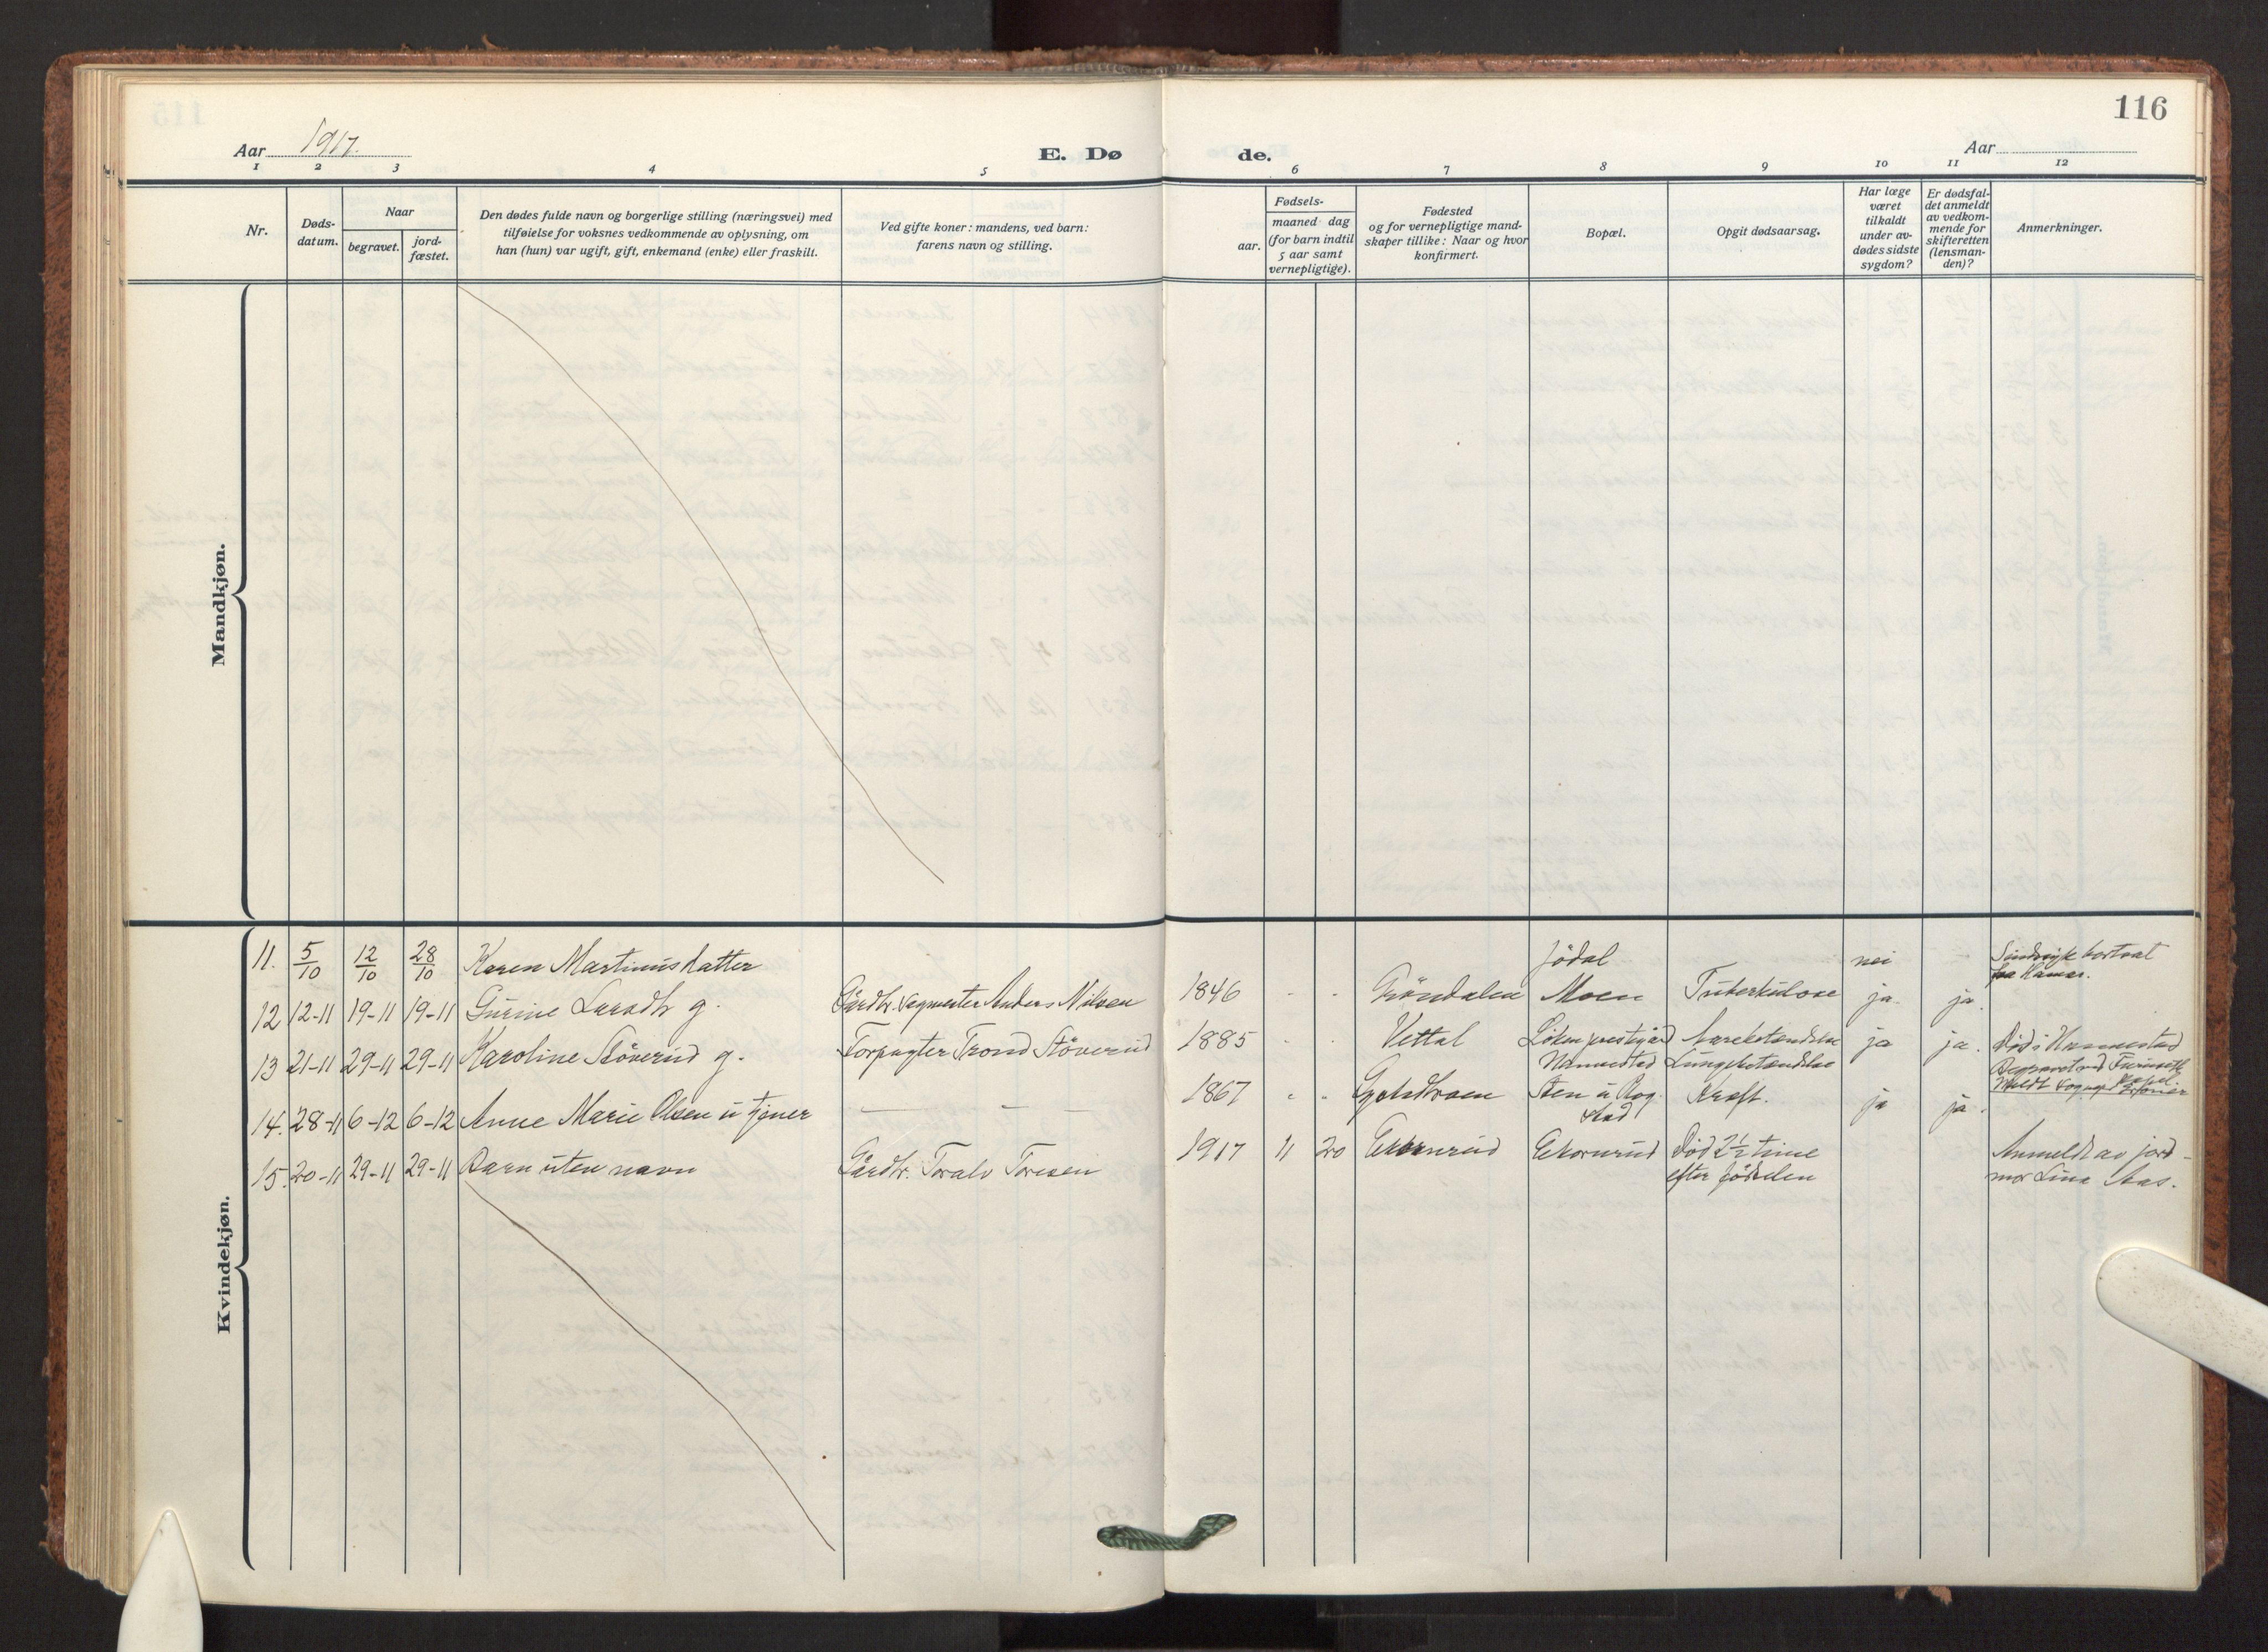 116
Aar 1917.
E. Døde.
Aar
1 2 3 4 5 6 7 8 9 10 11 12
Nr.
Døds-
datum.
Naar
begravet.
jord-
fæstet.
Den dødes fulde navn og borgerlige stilling (næringsvei) med
tilføielse for voksnes vedkommende av oplysning, om
han (hun) var ugift, gift, enkemand (enke) eller fraskilt.
Ved gifte koner: mandens, ved barn:
farens navn og stilling.
Fødsels-
aar.
maaned dag
(for barn indtil
5 aar samt
vernepligtige).
Fødested
og for vernepligtige mand-
skaper tillike: Naar og hvor
konfirmert.
Bopæl.
Opgit dødsaarsag.
Har læge
været
tilkaldt
under av-
dødes sidste
sygdom?
Er dødsfal-
det anmeldt
av vedkom-
mende for
skifteretten
(lensman-
den)?
Anmerkninger.
Mandkjøn.
Kvindekjøn.
11. 5/10 12/10 28/10 Karen Martinusdatter Jödal nei
fra Hamar.
12 12-11 19-11 19-11 Gurine Larsdtr g. Gårdbr. Anders Nilsen 1846 - - Gröndalen Moen Tuberkulose ja. ja.
13 21-11 29-11 29-11 Karoline Stöverud g. Forpagter Trond Stöverud 1885 - - Vettal Löten prestegård ja ja. Död i
14. 28-11 6-12 6-12 Anne Marie Olsen u tjener — — — 1867 - - Sten i Rog
stad Kræft. ja ja.
15. 20-11 29-11 29-11 Barn uten navn Gårdbr. Toralv Toresen 1917 11 20 Ekornrud Ekornrud Död 2½ time
efter födselen
Anmeldt av jord-
mor Lina Aas.